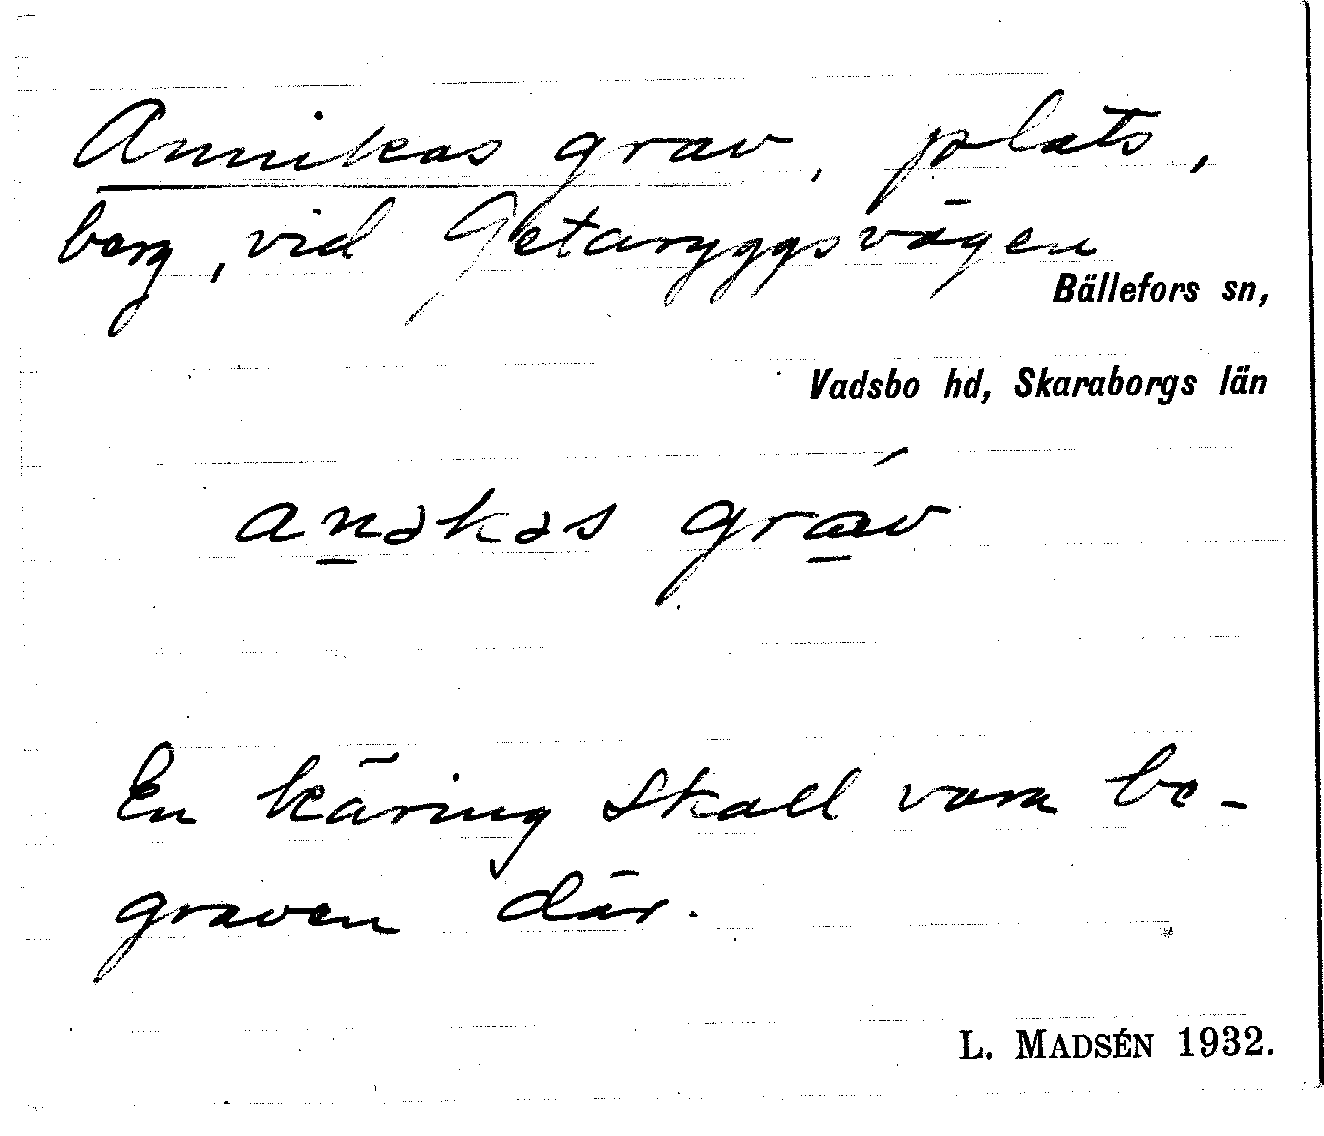 Annikas grav, plats,
berg, vid Getaryggsvägen
Bällefors sn,
Vadsbo hd, Skaraborgs län
an̲əkəs grá̲v
En käring skall vara be-
graven där.
L. MADSÉN 1932.